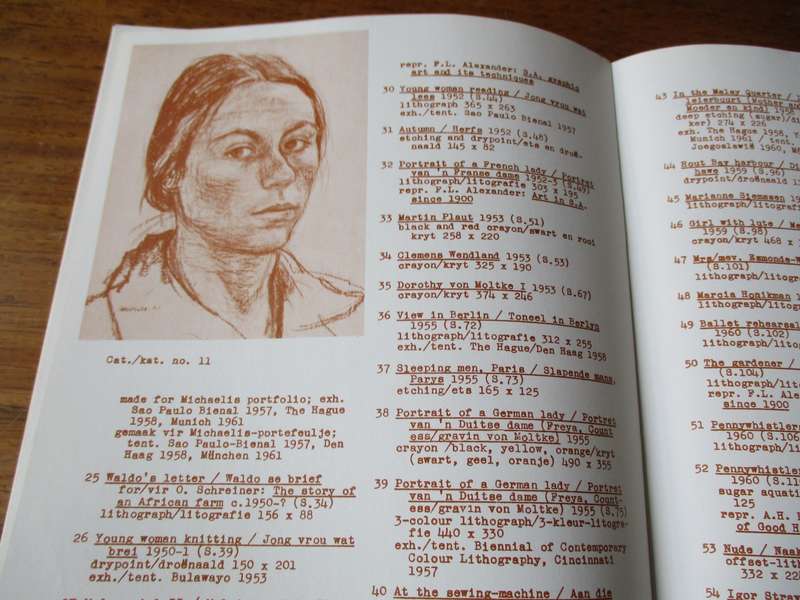 Cat./kat. no. 11
made for Michaelis portfolio; exh.
Sao Paulo Bienal 1957, The Hague
1958, Munich 1961
gemaak vir Michaelis-portefeulje;
tent. Sao Paulo-Bienal 1957, Den
Haag 1958, München 1961
25 Waldo's letter / Waldo se brief
for/vir O. Schreiner: The story of
an African farm c.1950-? (S.34)
lithograph/litografie 156 x 88
26 Young woman knitting / Jong vrou wat
brei 1950-1 (S.39)
drypoint/droënaald 150 x 201
exh./tent. Bulawayo 1953
repr. F.L. Alexander: S.A. graphic
art and its techniques
30 Young woman reading / Jong vrou wat
lees 1952 (S.44)
lithograph 365 x 263
exh./tent. Sao Paulo Bienal 1957
31 Autumn / Herfs 1952 (S.48)
etching and drypoint/ets en droë-
naald 145 x 82
32 Portrait of a French lady / Portret
van 'n Franse dame 1952-3 (S.67)
lithograph/litografie 303 x 195
repr. F.L. Alexander: Art in S.A.
since 1900
33 Martin Plaut 1953 (S.51)
black and red crayon/swart en rooi
kryt 258 x 220
34 Clemens Wendland 1953 (S.53)
crayon/kryt 325 x 190
35 Dorothy von Moltke I 1953 (S.6?)
crayon/kryt 374 x 246
36 View in Berlin / Toneel in Berlyn
1955 (S.72)
lithograph/litografie 312 x 255
exh./tent. The Hague/Den Haag 1958
37 Sleeping men, Paris / Slapende mans,
Parys 1955 (S.73)
etching/ets 165 x 125
38 Portrait of a German lady / Portret
van 'n Duitse dame (Freya, Count
ess/gravin von Moltke) 1955
crayon /black, yellow, orange/kryt
(swart, geel, oranje) 490 x 355
39 Portrait of a German lady / Portret
van 'n Duitse dame (Freya, Count-
ess/gravin von Moltke) 1955 (S.75)
3-colour lithograph/3-kleur-litogra-
fie 440 x 330
exh./tent. Biennial of Contemporary
Colour Lithography, Cincinnati
1957
40 At the sewing-machine / Aan die
43 In the Malay Quarter /
Moeder en kind)
deep etching (sugar)/di
ker) 274 x 226
exh. The Hague 1958,
Munich 1961 / tent.
Joegoslawië 1960,
44 Hout Bay harbour /
hawe 1959 (S.96)
drypoint/droënaald
45 Marianne Siemssen
lithograph/litograf
46 Girl with lute /
1959 (S.98)
crayon/kryt 468 x
47 Mrs/mev.
(S.101)
lithograph/litog
48 Marcia Honikman
lithograph/lito
49 Ballet rehearsal
1960 (S.102)
lithograph/lito
50 The gardener /
(S.104)
lithograph/li
repr. F.L.
since 1900
51 Pennywhistlers
1960 (S.106
lithograph/li
52 Pennywhistler
1960
sugar aquati
125
repr. A.H.
of Good H
53 Nude / Naak
offset-lit
332 x 22
54 Igor Strav